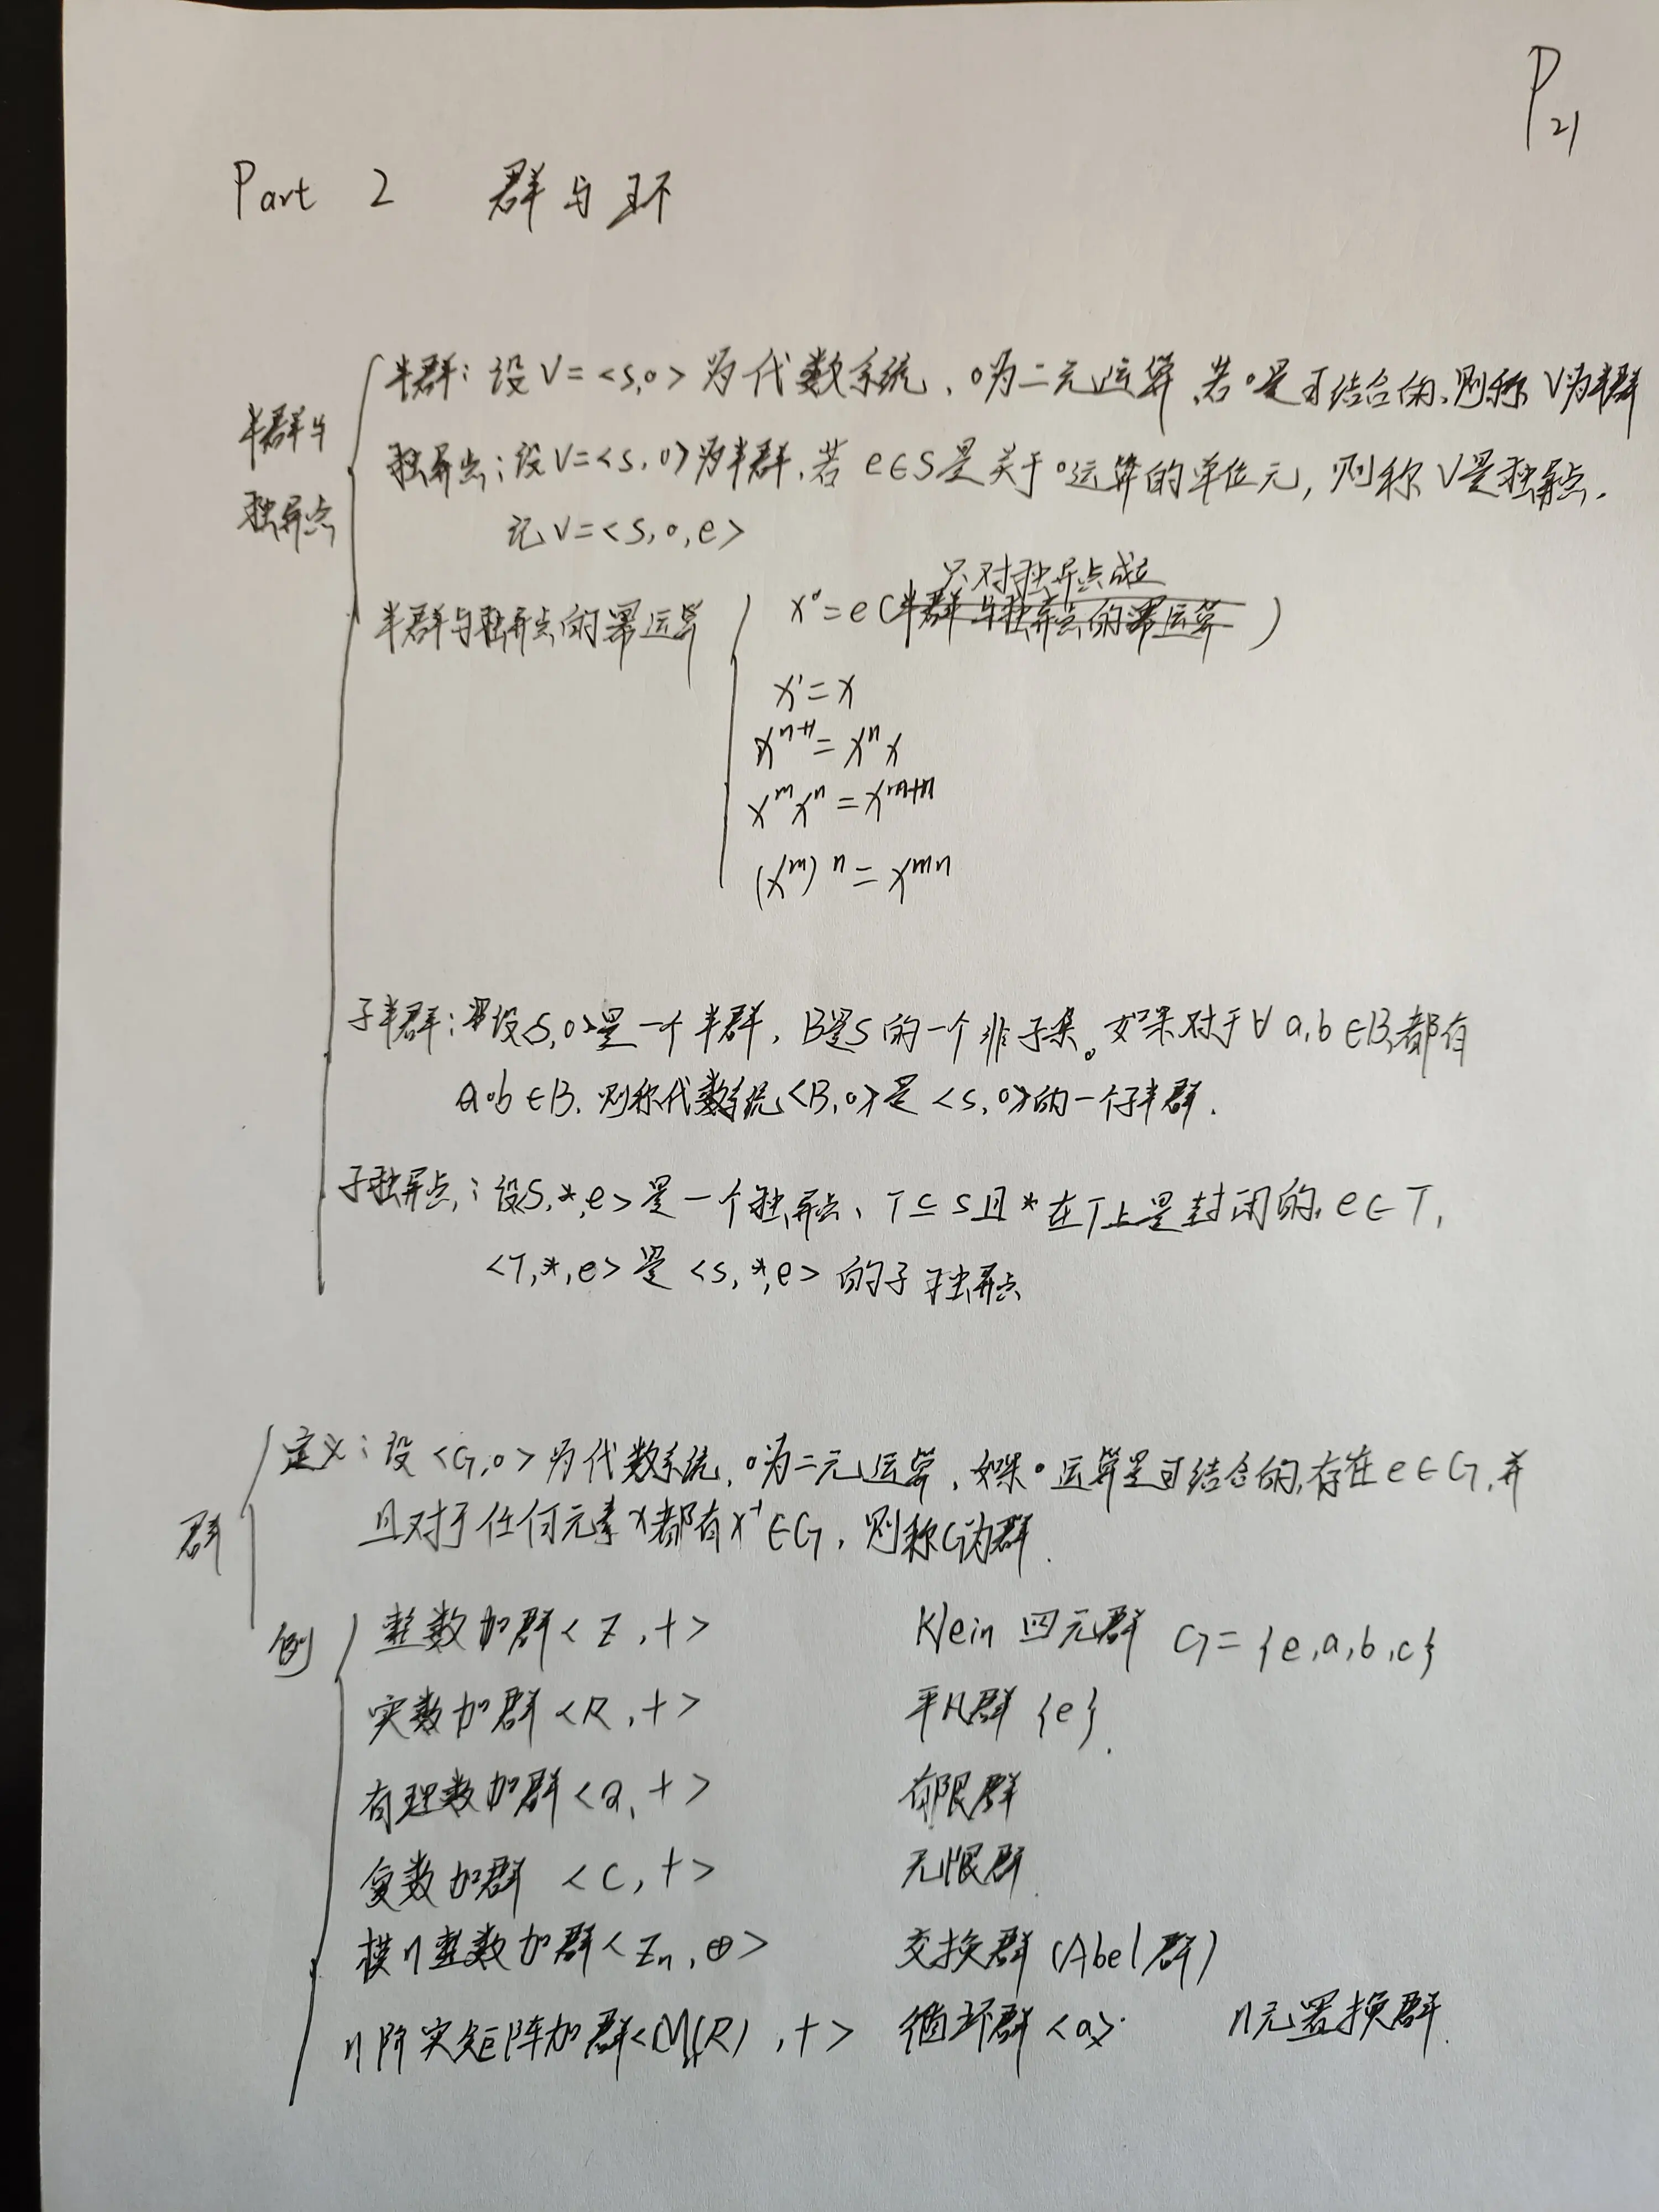 P21
Part 2 群与环
半群与独异点
半群：设V=<S,∘>为代数系统，∘为二元运算，若∘是可结合的，则称V为半群
独异点：设V=<S,∘>为半群，若e∈S是关于∘运算的单位元，则称V是独异点，
记V=<S,∘,e>
半群与独异点的幂运算
只对独异点成立
x⁰=e(半群与独异点的幂运算)
x¹=x
xⁿ⁺¹=xⁿx
xᵐxⁿ=xᵐ⁺ⁿ
(xᵐ)ⁿ=xᵐⁿ
子半群：设<S,∘>是一个半群，B是S的一个非子集。如果对于∀a,b∈B,都有
a∘b∈B，则称代数系统<B,∘>是<S,∘>的一个子半群.
子独异点：设<S,*,e>是一个独异点、T⊆S且*在T上是封闭的，e∈T，
<T,*,e>是<S,*,e>的子独异点
群
定义：设<G,∘>为代数系统，∘为二元运算，如果∘运算是可结合的，存在e∈G，并
且对于任何元素x都有x⁻¹∈G，则称G为群.
例
整数加群<Z,+> Klein四元群 G={e,a,b,c}
实数加群<R,+> 平凡群{e}.
有理数加群<Q,+> 有限群
复数加群<C,+> 无限群
模n整数加群<Zn,⊕> 交换群(Abel群)
n阶实矩阵加群<Mn(R),+> 循环群<a> n元置换群.